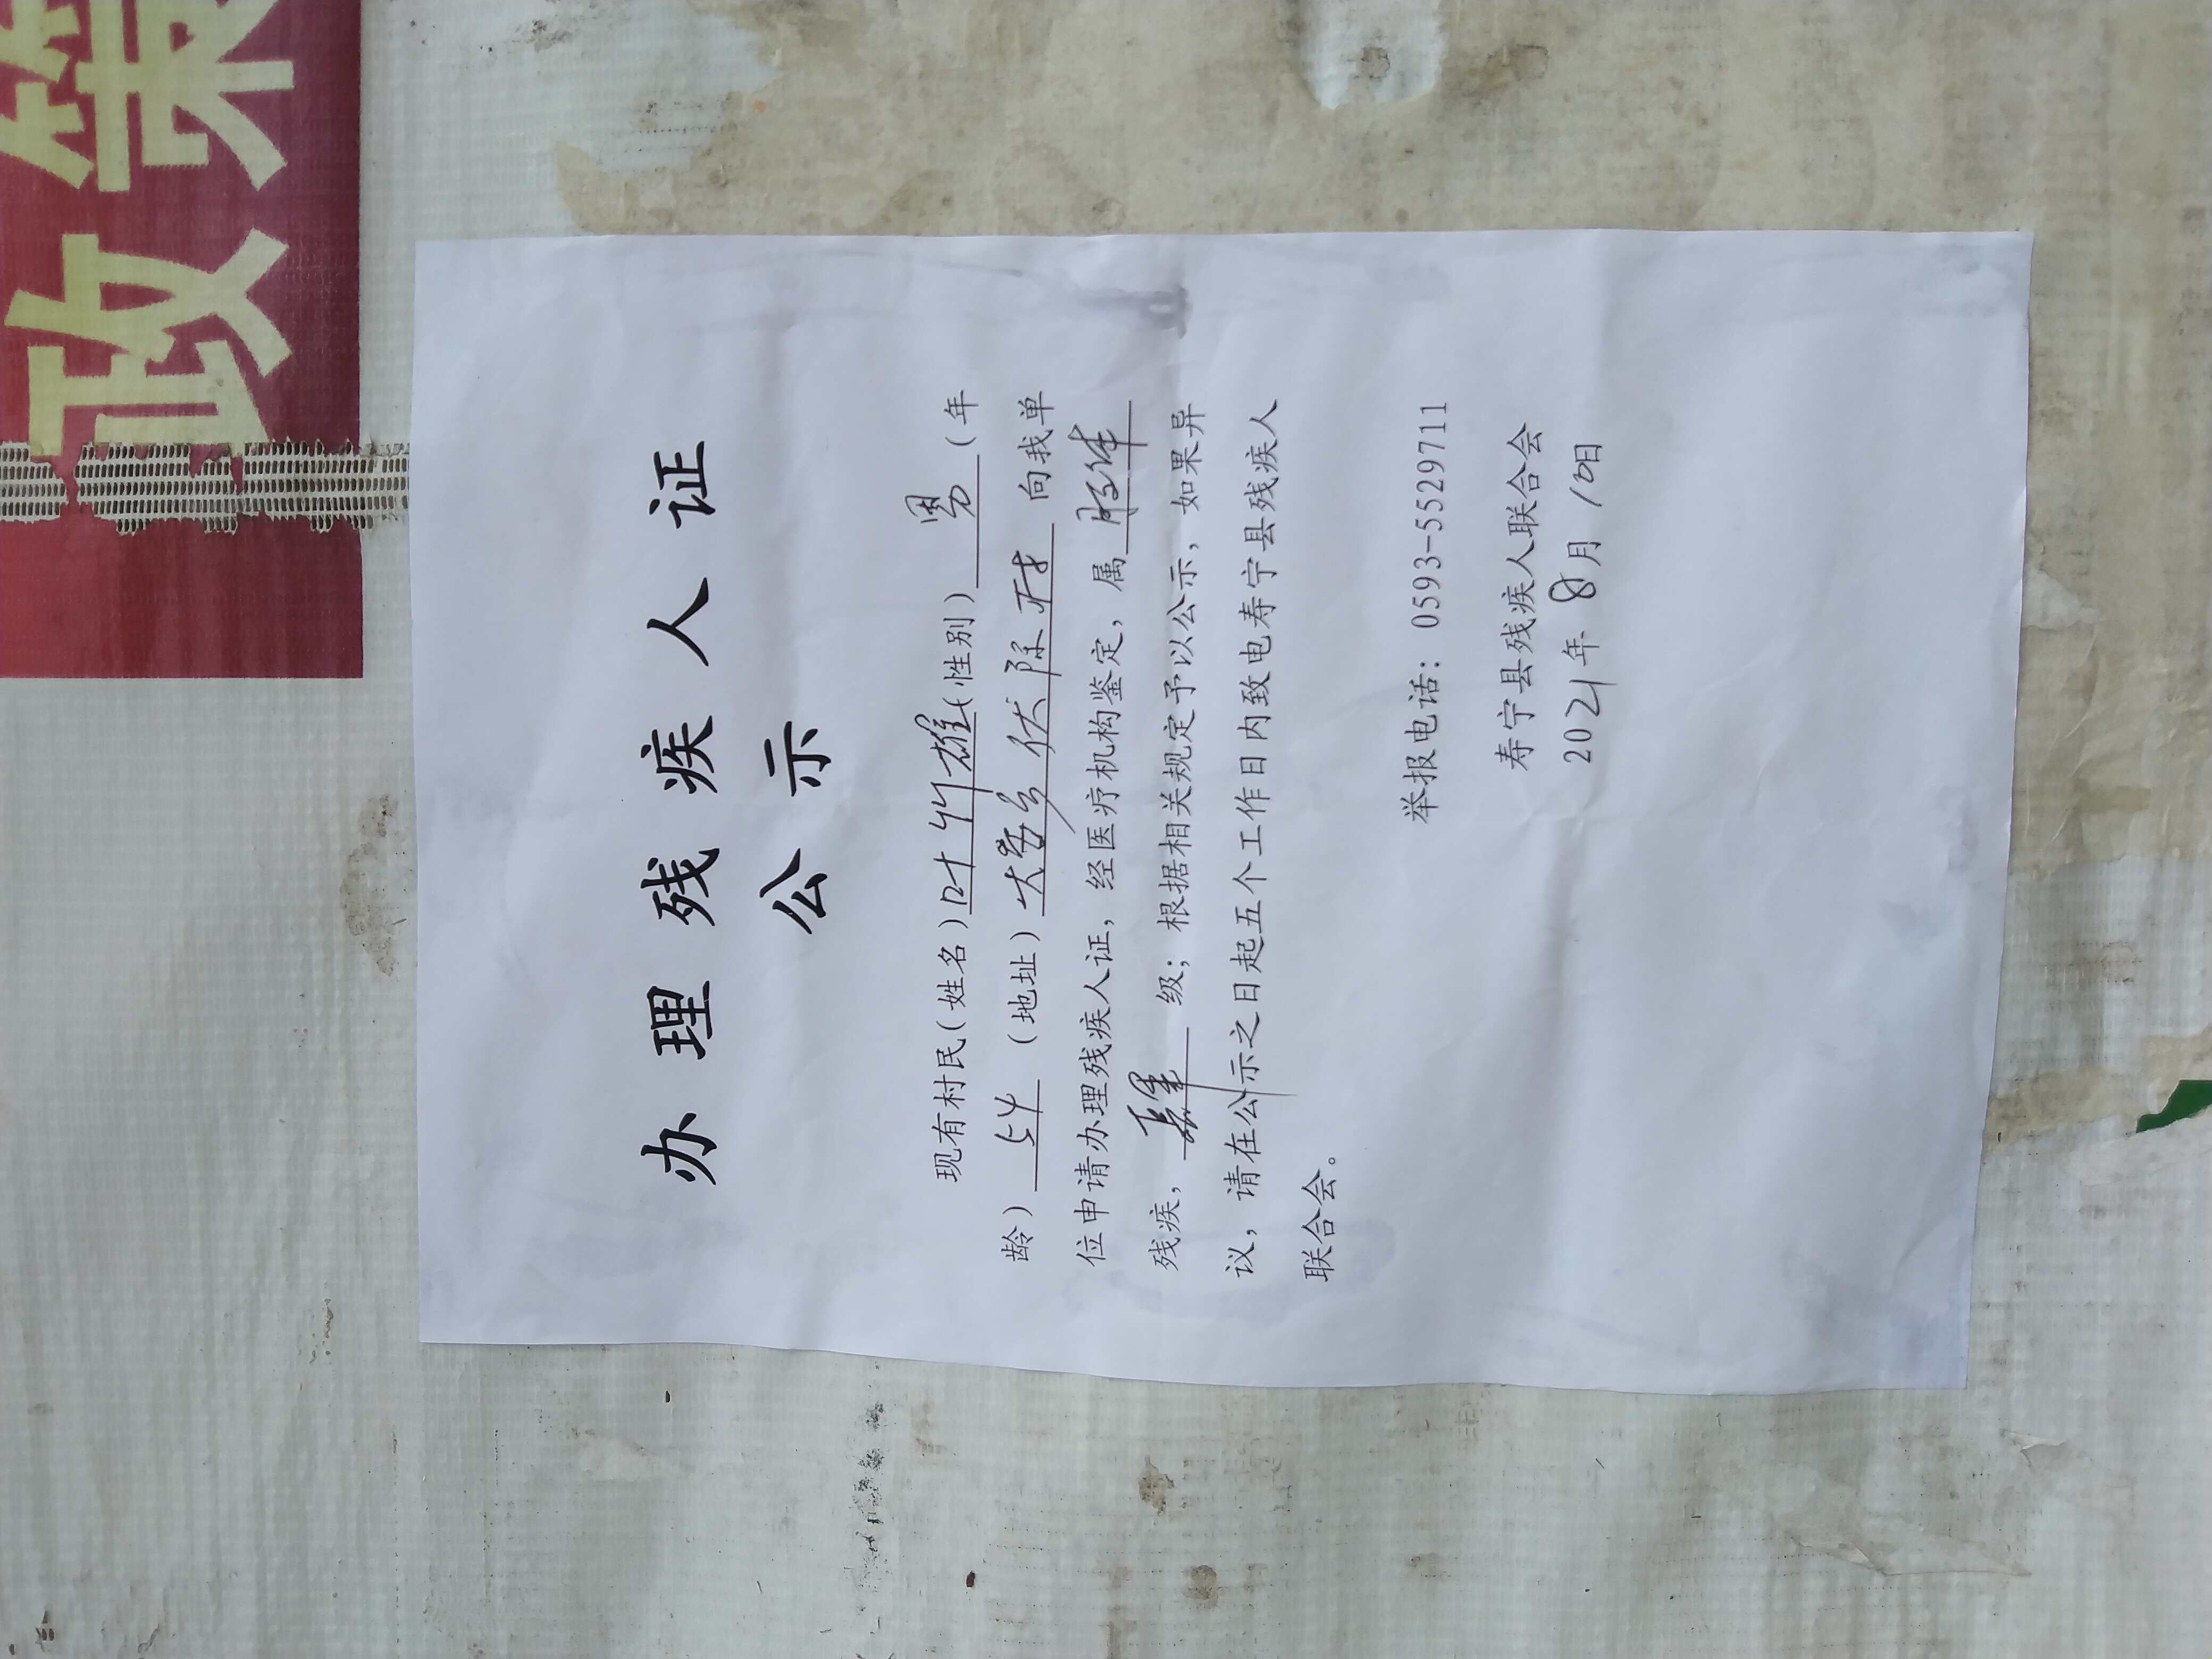 政策
办理残疾人证
公示
现有村民（姓名）叶竹雄（性别）男（年
龄）54（地址）大安乡伏际村向我单
位申请办理残疾人证，经医疗机构鉴定，属肢体
残疾，肆级；根据相关规定予以公示，如果异
议，请在公示之日起五个工作日内致电寿宁县残疾人
联合会。
举报电话：0593-5529711
寿宁县残疾人联合会
2021年8月10日